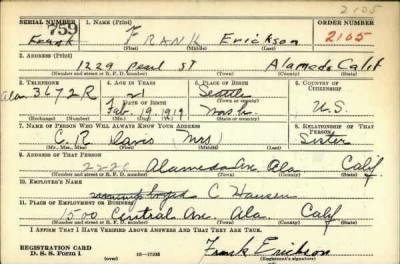 2105
SERIAL NUMBER 1. NAME (Print) ORDER NUMBER
759 FRANK Erickson 2105
Frank (First) (Middle) (Last)
2. ADDRESS (Print)
1229 Pearl ST Alameda Calif
(Number and street or R. F. D. number) (Town) (County) (State)
3. TELEPHONE 4. AGE IN YEARS 5. PLACE OF BIRTH 6. COUNTRY OF CITIZENSHIP
Ala 3672R 21 Seattle
DATE OF BIRTH (Town or county)
Feb 19 1919 Wash. U.S.
(Exchange) (Number) (Mo.) (Day) (Yr.) (State or country)
7. NAME OF PERSON WHO WILL ALWAYS KNOW YOUR ADDRESS 8. RELATIONSHIP OF THAT PERSON
C. R. Davis (Mrs) Sister
(Mr., Mrs., Miss) (First) (Middle) (Last)
9. ADDRESS OF THAT PERSON
2220 Alameda Ave. Ala Calif.
(Number and street or R. F. D. number) (Town) (County) (State)
10. EMPLOYER'S NAME
C Hansen
11. PLACE OF EMPLOYMENT OR BUSINESS
1500 Central Ave. Ala. Calif
(Number and street or R. F. D. number) (Town) (County) (State)
I AFFIRM THAT I HAVE VERIFIED ABOVE ANSWERS AND THAT THEY ARE TRUE.
REGISTRATION CARD
D. S. S. Form 1 16—17105 Frank Erickson
(Registrant's signature)